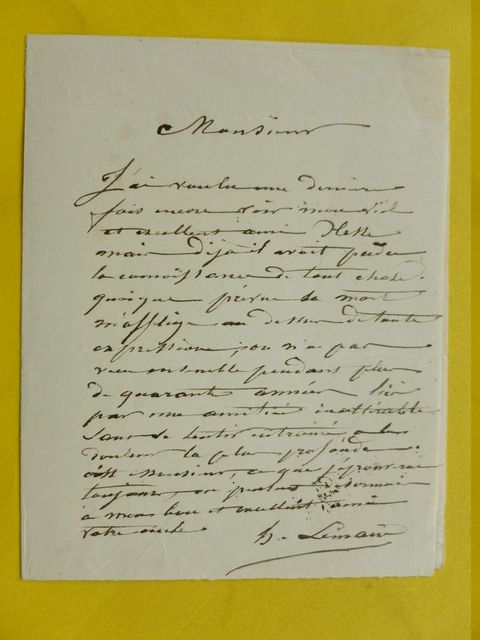 Monsieur
J'ai voulu une dernière
fois encore voir mon vieil
et excellent ami Hesse
mais déjà il avait perdu
la connoissance de tout chose.
quoique prévue sa mort
m'afflige au dessus de toute
expression, on n'a pas
vécu ensemble pendant plus
de quarante années lié
par une amitié inaltérable
sans se sentir entrainé a la
douleur la plus profonde
c'est Monsieur, ce que j'éprouverai
toujours, en pensant désormais
à mon bon et excellent ami
votre oncle
h. Lemaire